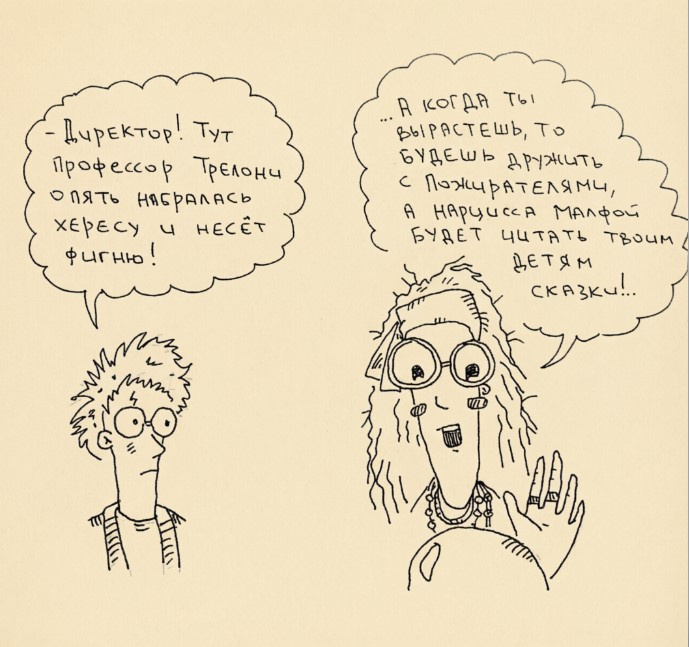 - Директор! Тут
профессор Трелони
опять набралась
хересу и несёт
фигню!
...А когда ты
вырастешь, то
будешь дружить
с Пожирателями,
а Нарцисса Малфой
будет читать твоим
детям
сказки!..